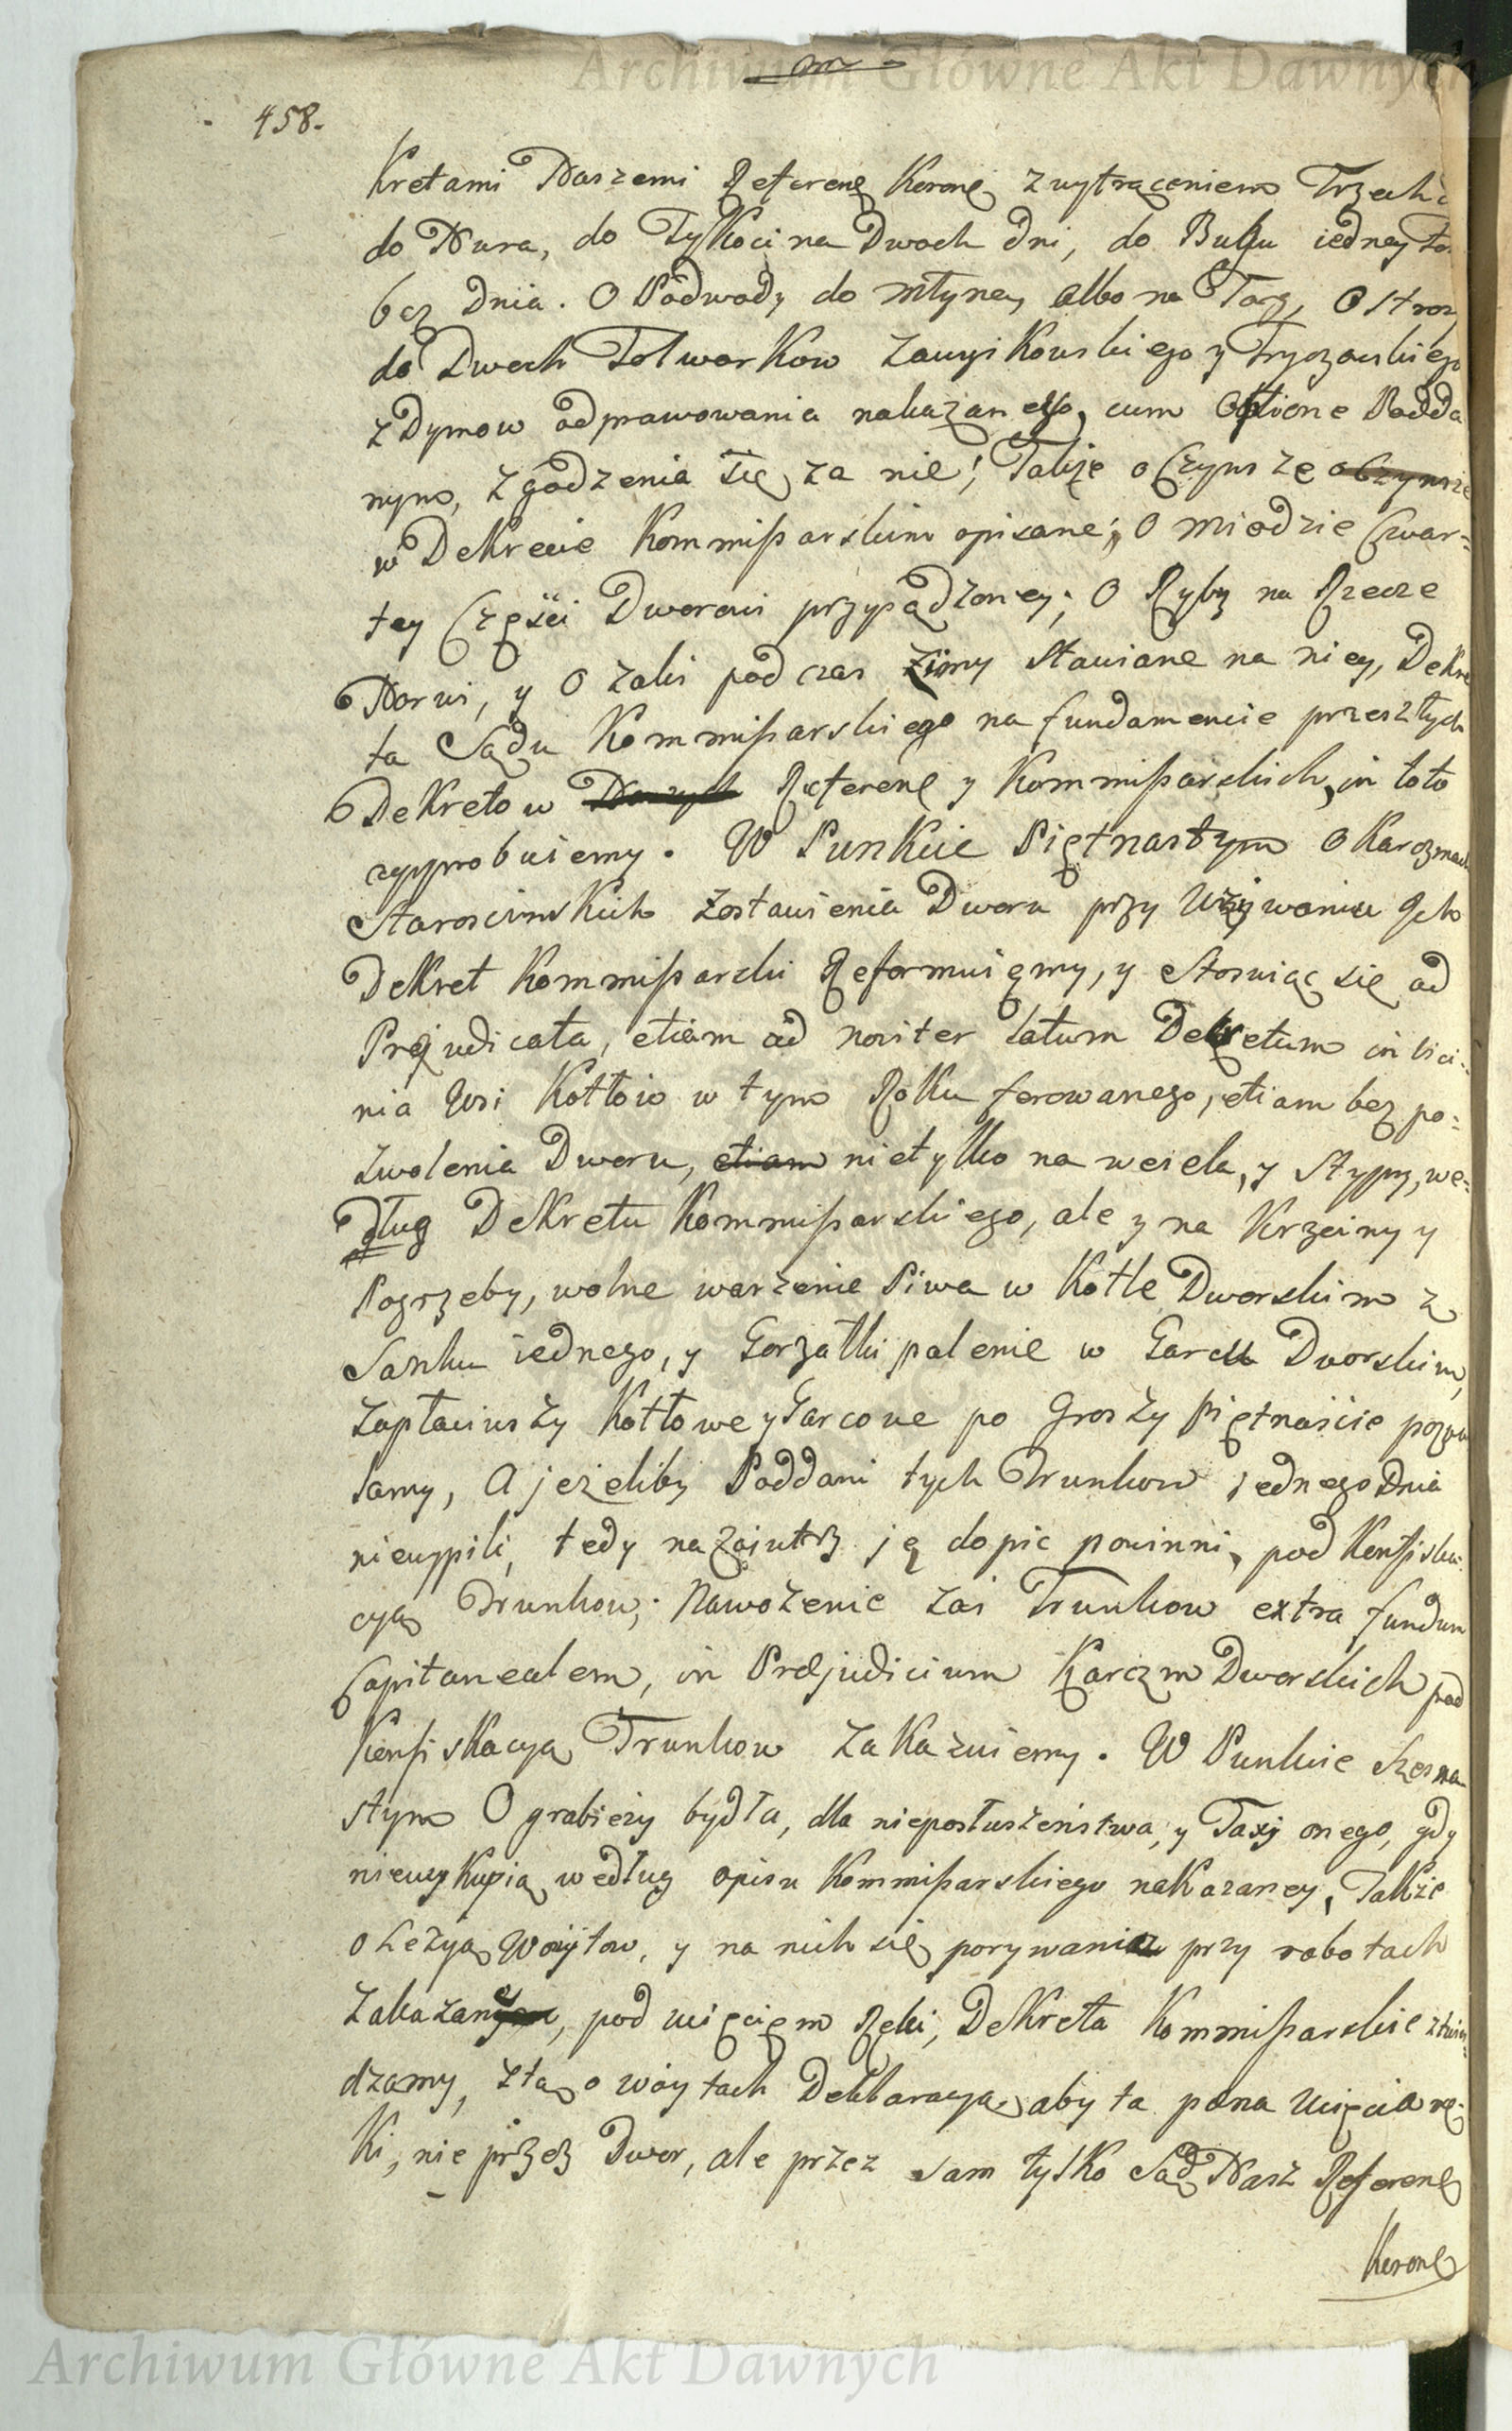 Archiwum Główne Akt Dawnych
458.
kretami Naszemi Referenę Koronę z wytrąceniem Trzech
do Nura, do Tykocina Dwoch dni, do Buhu iedney
bez Dnia. O Podwody do młyna, albo na Targ, O
do Dwoch Folwarkow Zawykowskiego y Tryczowskiego
z Dymow odprawowania nakazanego, cum Optione Podda
nym, zgodzenia się za nie; Także o Czynsze o Czynsze
w Dekrecie Kommissarskim opisane; O miodzie Czwar=
tey Części Dworowi przysądzoney; O Ryby na Rzece
Narwi, y O Zabi podczas Zimy stawiane na niey, Dekre
ta Sądu Kommissarskiego na fundamencie przeszłych
Dekretow Naszych Referenę y Kommissarskich, in toto
approbuiemy. W Punkcie Piętnastym O Karczmach
Starościnskich zostawienia Dworu przy Używaniu Ich
Dekret Kommissarski Reformuięmy, y Stosuiąc się ad
Pręjudicata, etiam ad noviter latum Dekretum in vici=
nia Wsi Kotłow w tym Roku ferowanego, etiam bez po=
zwolenia Dworu, etiam nietylko na wesela, y Stypy, we=
dług Dekretu Kommissarskiego, ale y na Krzciny y
Pogrzeby, wolne warzenie Piwa w Kotle Dworskim z
Sanku iednego, y Gorzałki palenie w Garcu Dworskim,
zapłaciwszy Kotłowe y Garcowe po Groszy piętnaście pozwa
lamy, A jeżeliby Poddani tych Trunkow jednego Dnia
niewypili, tedy nazaiutrz ję dopic powinni, pod Konfiska
cyą Trunkow; Nawożenie zaś Trunkow extra fundum
Capitanealem, in Pręjudicium Karczm Dworskich pod
Konfiskacyą Trunkow zakazuiemy. W Punkcie Szesna
stym O grabieży bydła, dla nieposłuszeństwa, y Taxy onego, gdy
niewykupią według opisu Kommissarskiego nakazaney, Także
o Leżyą Woytow, y na nich się porywanie przy robotach
zakazane, pod ucięciem Ręki, Dekreta Kommissarskie ztwier=
dzamy, z tą o woytach Deklaracyą, aby ta pœna Ucięcia rę=
ki, nie przez Dwor, ale przez sam tylko Sąd Nasz Referenę
Koronę
Archiwum Główne Akt Dawnych